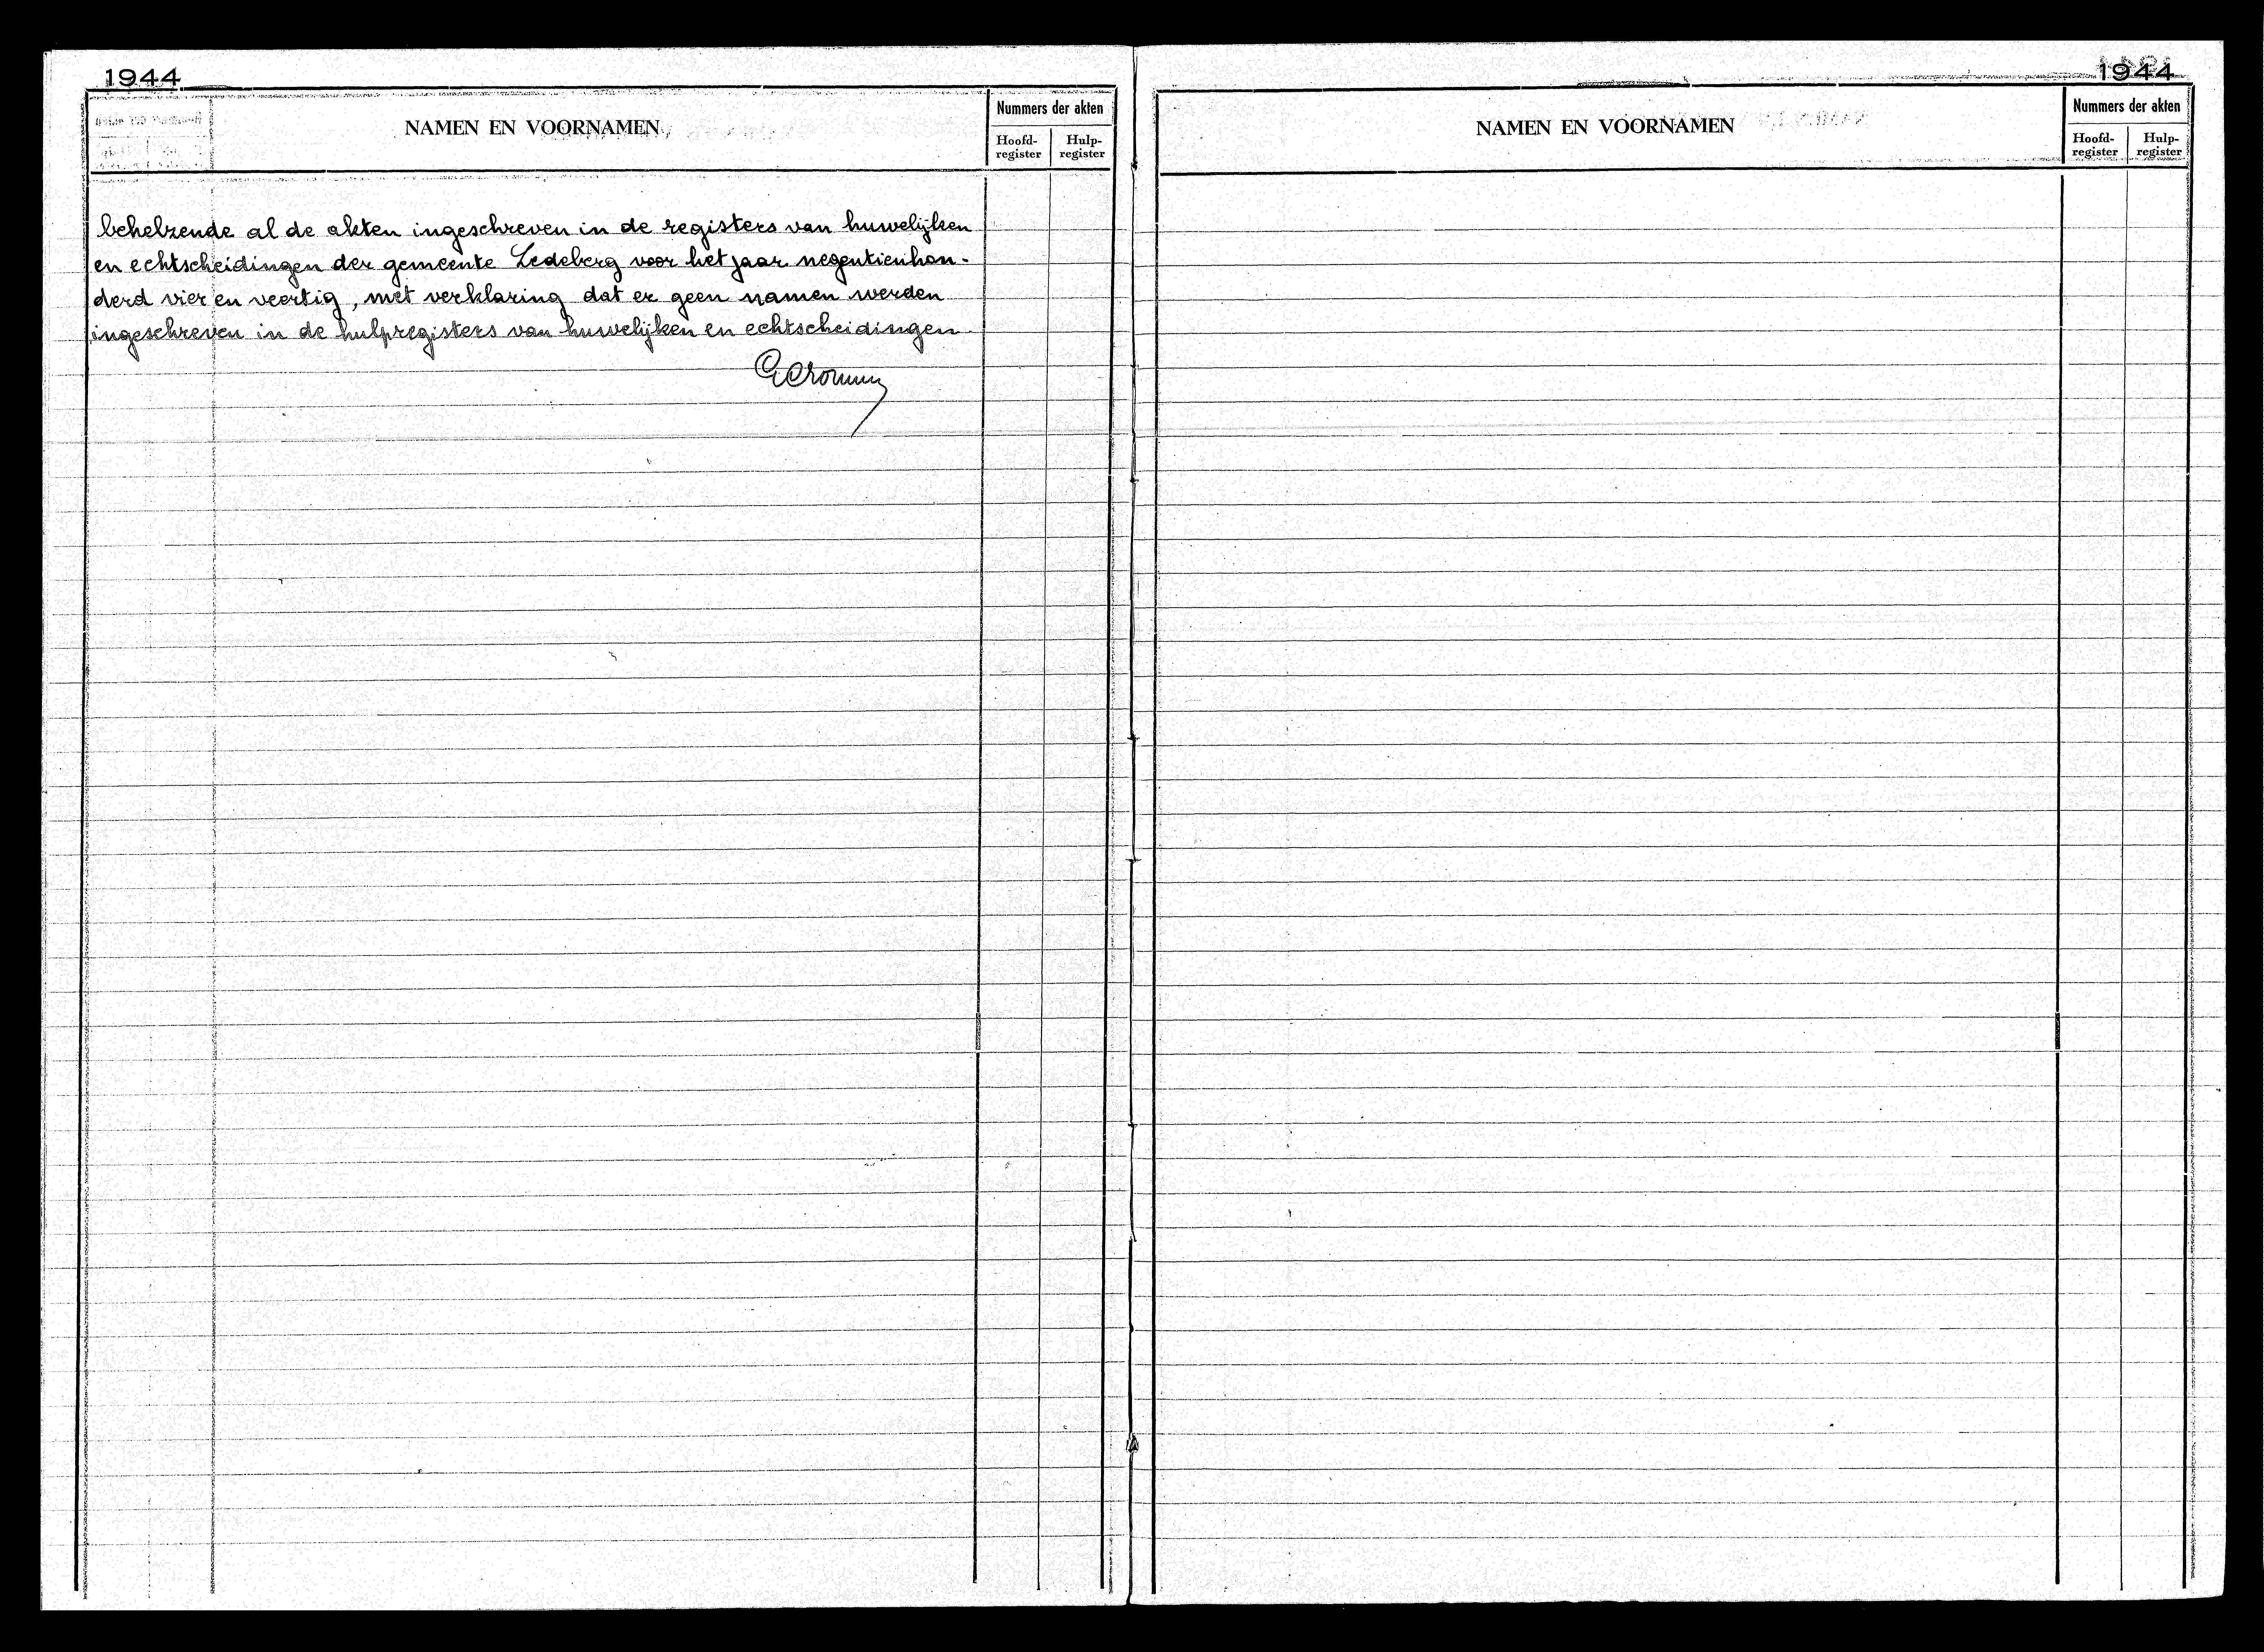 1944
NAMEN EN VOORNAMEN
Nummers der akten
Hoofd-
register
Hulp-
register
behelzende al de akten ingeschreven in de registers van huwelijken
en echtscheidingen der gemeente Ledeberg voor het jaar negentienhon-
derd vier en veertig, met verklaring dat er geen namen werden
ingeschreven in de hulpregisters van huwelijken en echtscheidingen
1944
NAMEN EN VOORNAMEN
Nummers der akten
Hoofd-
register
Hulp-
register